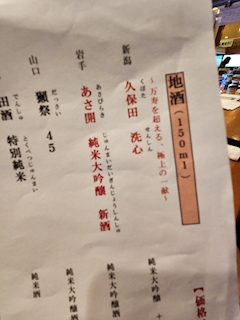 地酒(150ml)
～万寿を超える、極上の一献～
新潟 久保田 洗心
くぼた せんしん
純米大吟醸
岩手 あさ開 純米大吟醸 新酒
あさびらき じゅんまいだいぎんじょうしんしゅ
純米大吟醸
山口 獺祭 45
だっさい
純米大吟醸
田酒 特別純米
でんしゅ とくべつじゅんまい
純米酒
【価格